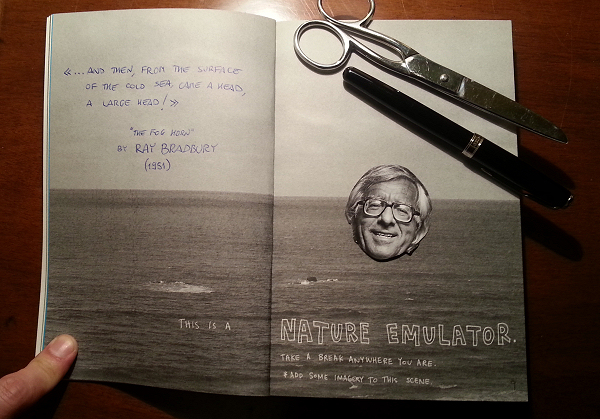 «...AND THEN, FROM THE SURFACE
OF THE COLD SEA CAME A HEAD,
A LARGE HEAD!»
"THE FOG HORN"
BY RAY BRADBURY
(1951)
THIS IS A
NATURE EMULATOR.
TAKE A BREAK ANYWHERE YOU ARE.
& ADD SOME IMAGERY TO THIS SCENE.